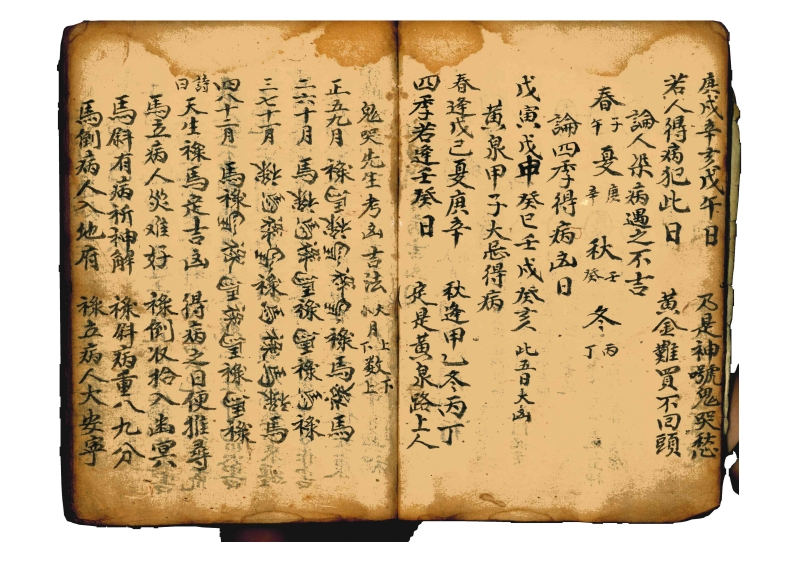 庚戌辛亥戊午日 乃是神號鬼哭愁
若人得病犯此日 黃金難買不回頭
論人染病遇之不吉
春子午 夏庚辛 秋壬癸 冬丙丁
論四季得病凶日
戊寅戊申癸巳壬戌癸亥 此五日大凶
黃泉甲子大忌得病
春逢戊己夏庚辛 秋逢甲乙冬丙丁
四季若逢壬癸日 定是黃泉路上人
鬼哭先生考凶吉法 大月上數下 小月下數上
正五九月 祿 祿 馬 祿 馬
二六十月 馬 祿 馬 祿
三七十一月 祿 馬 祿 馬
四八十二月 馬 祿 祿 祿
詩曰 天生祿馬定吉凶 得病之日便推尋
馬立病人災難好 祿倒收拾入幽冥
馬斜有病祈神解 祿斜病重八九分
馬倒病人入地府 祿立病人大安寧